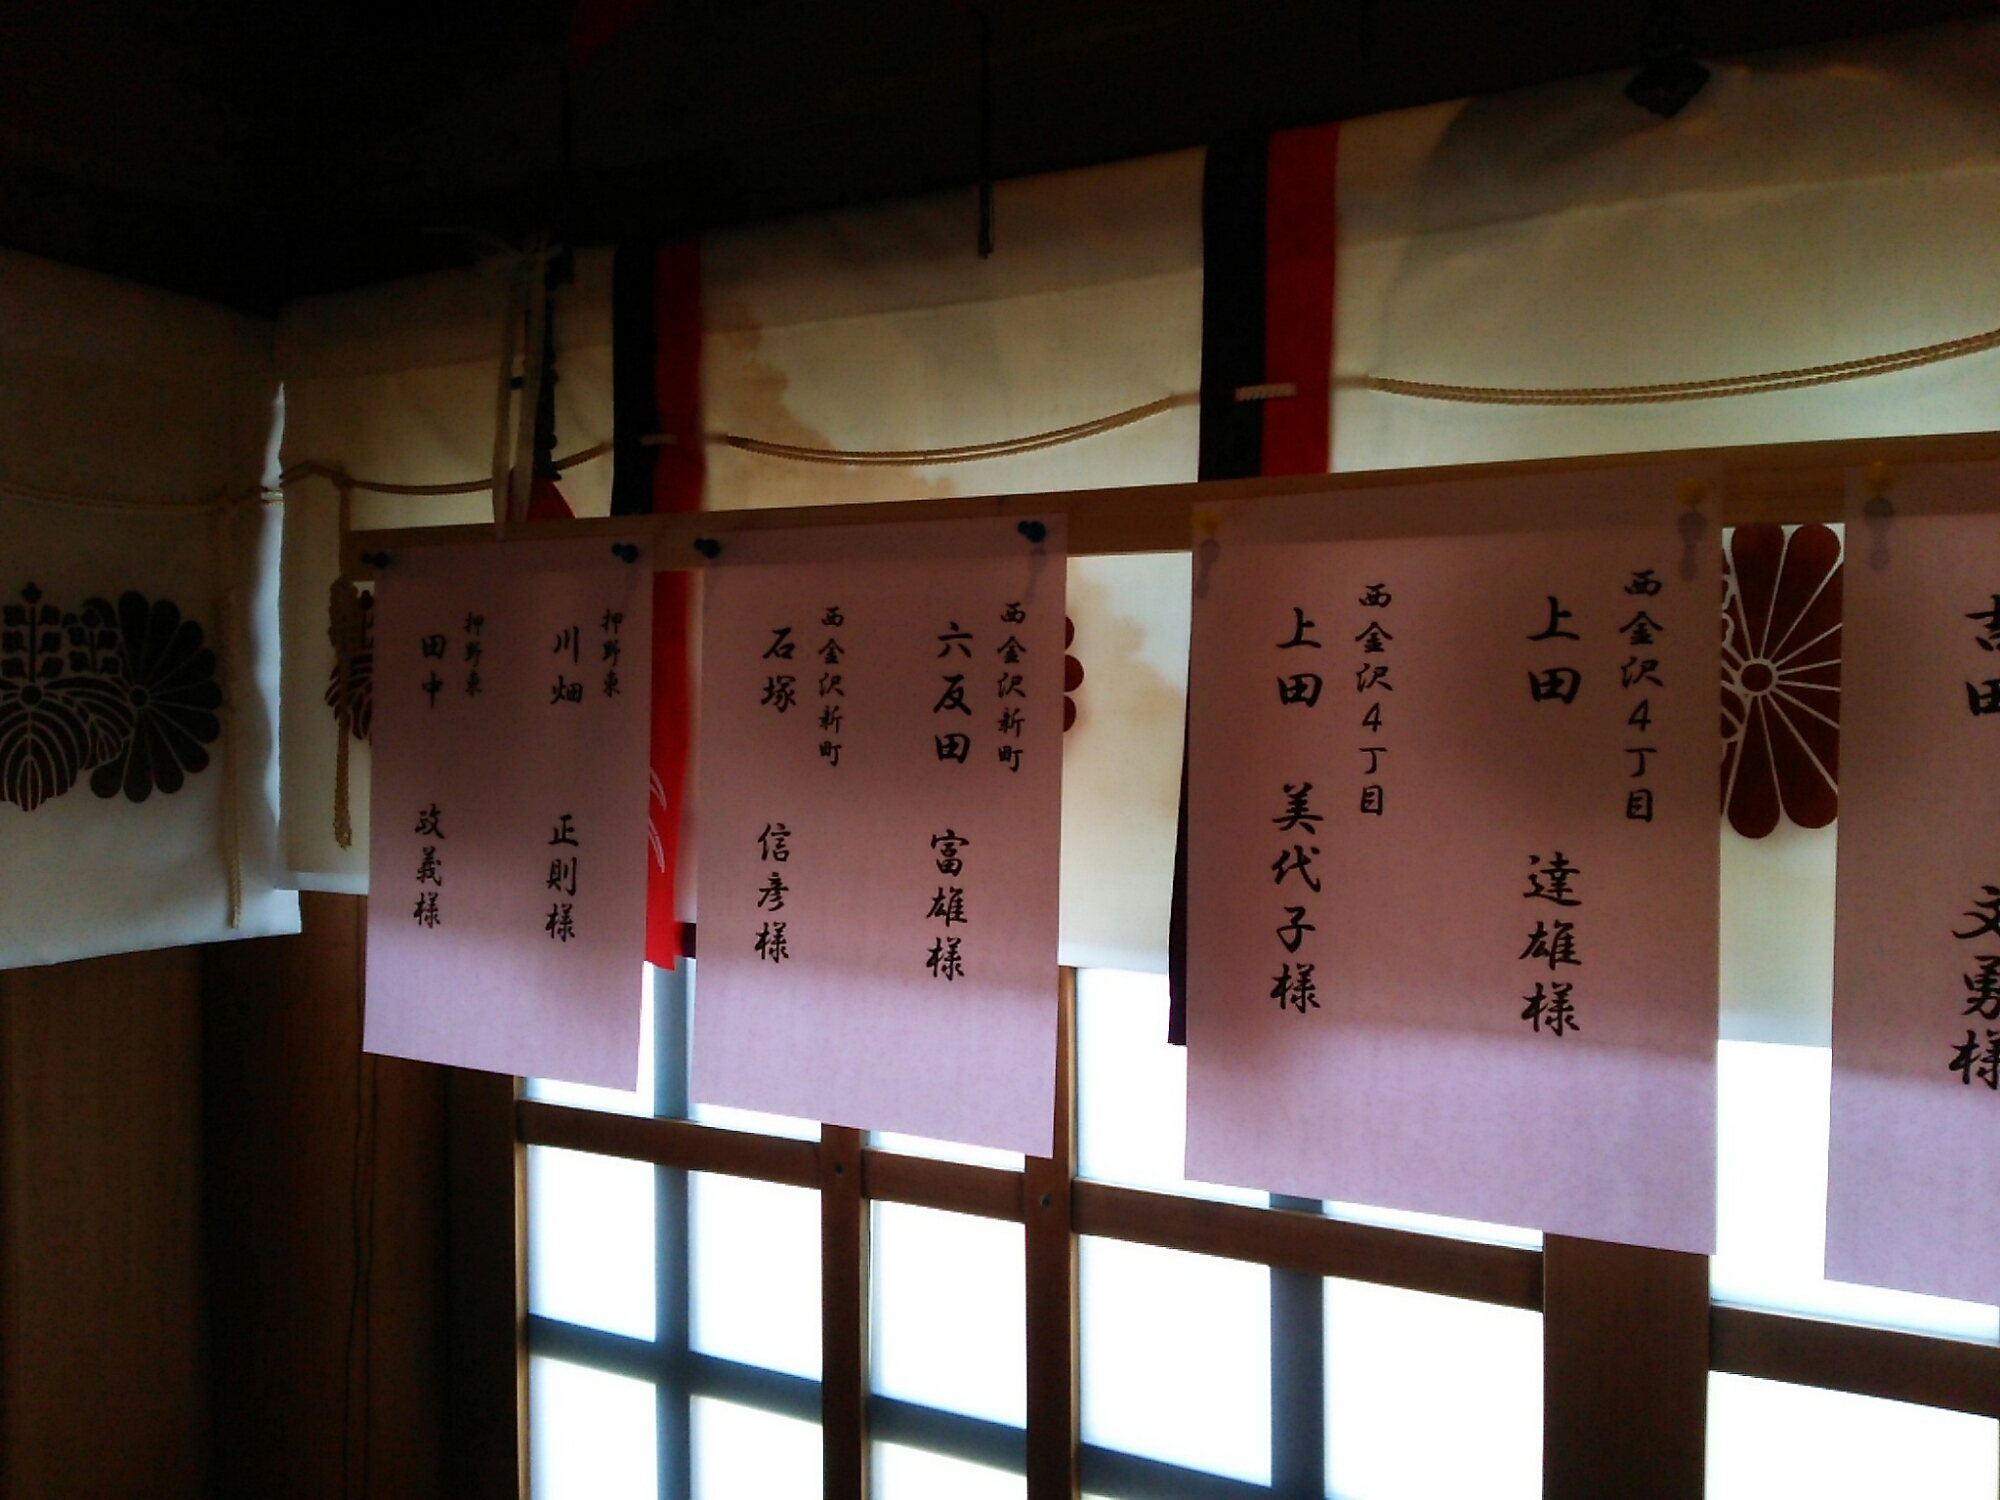 吉田 文勇様
西金沢4丁目
上田 達雄様
西金沢4丁目
上田 美代子様
西金沢新町
六反田 富雄様
西金沢新町
石塚 信彦様
押野東
川畑 正則様
押野東
田中 政義様